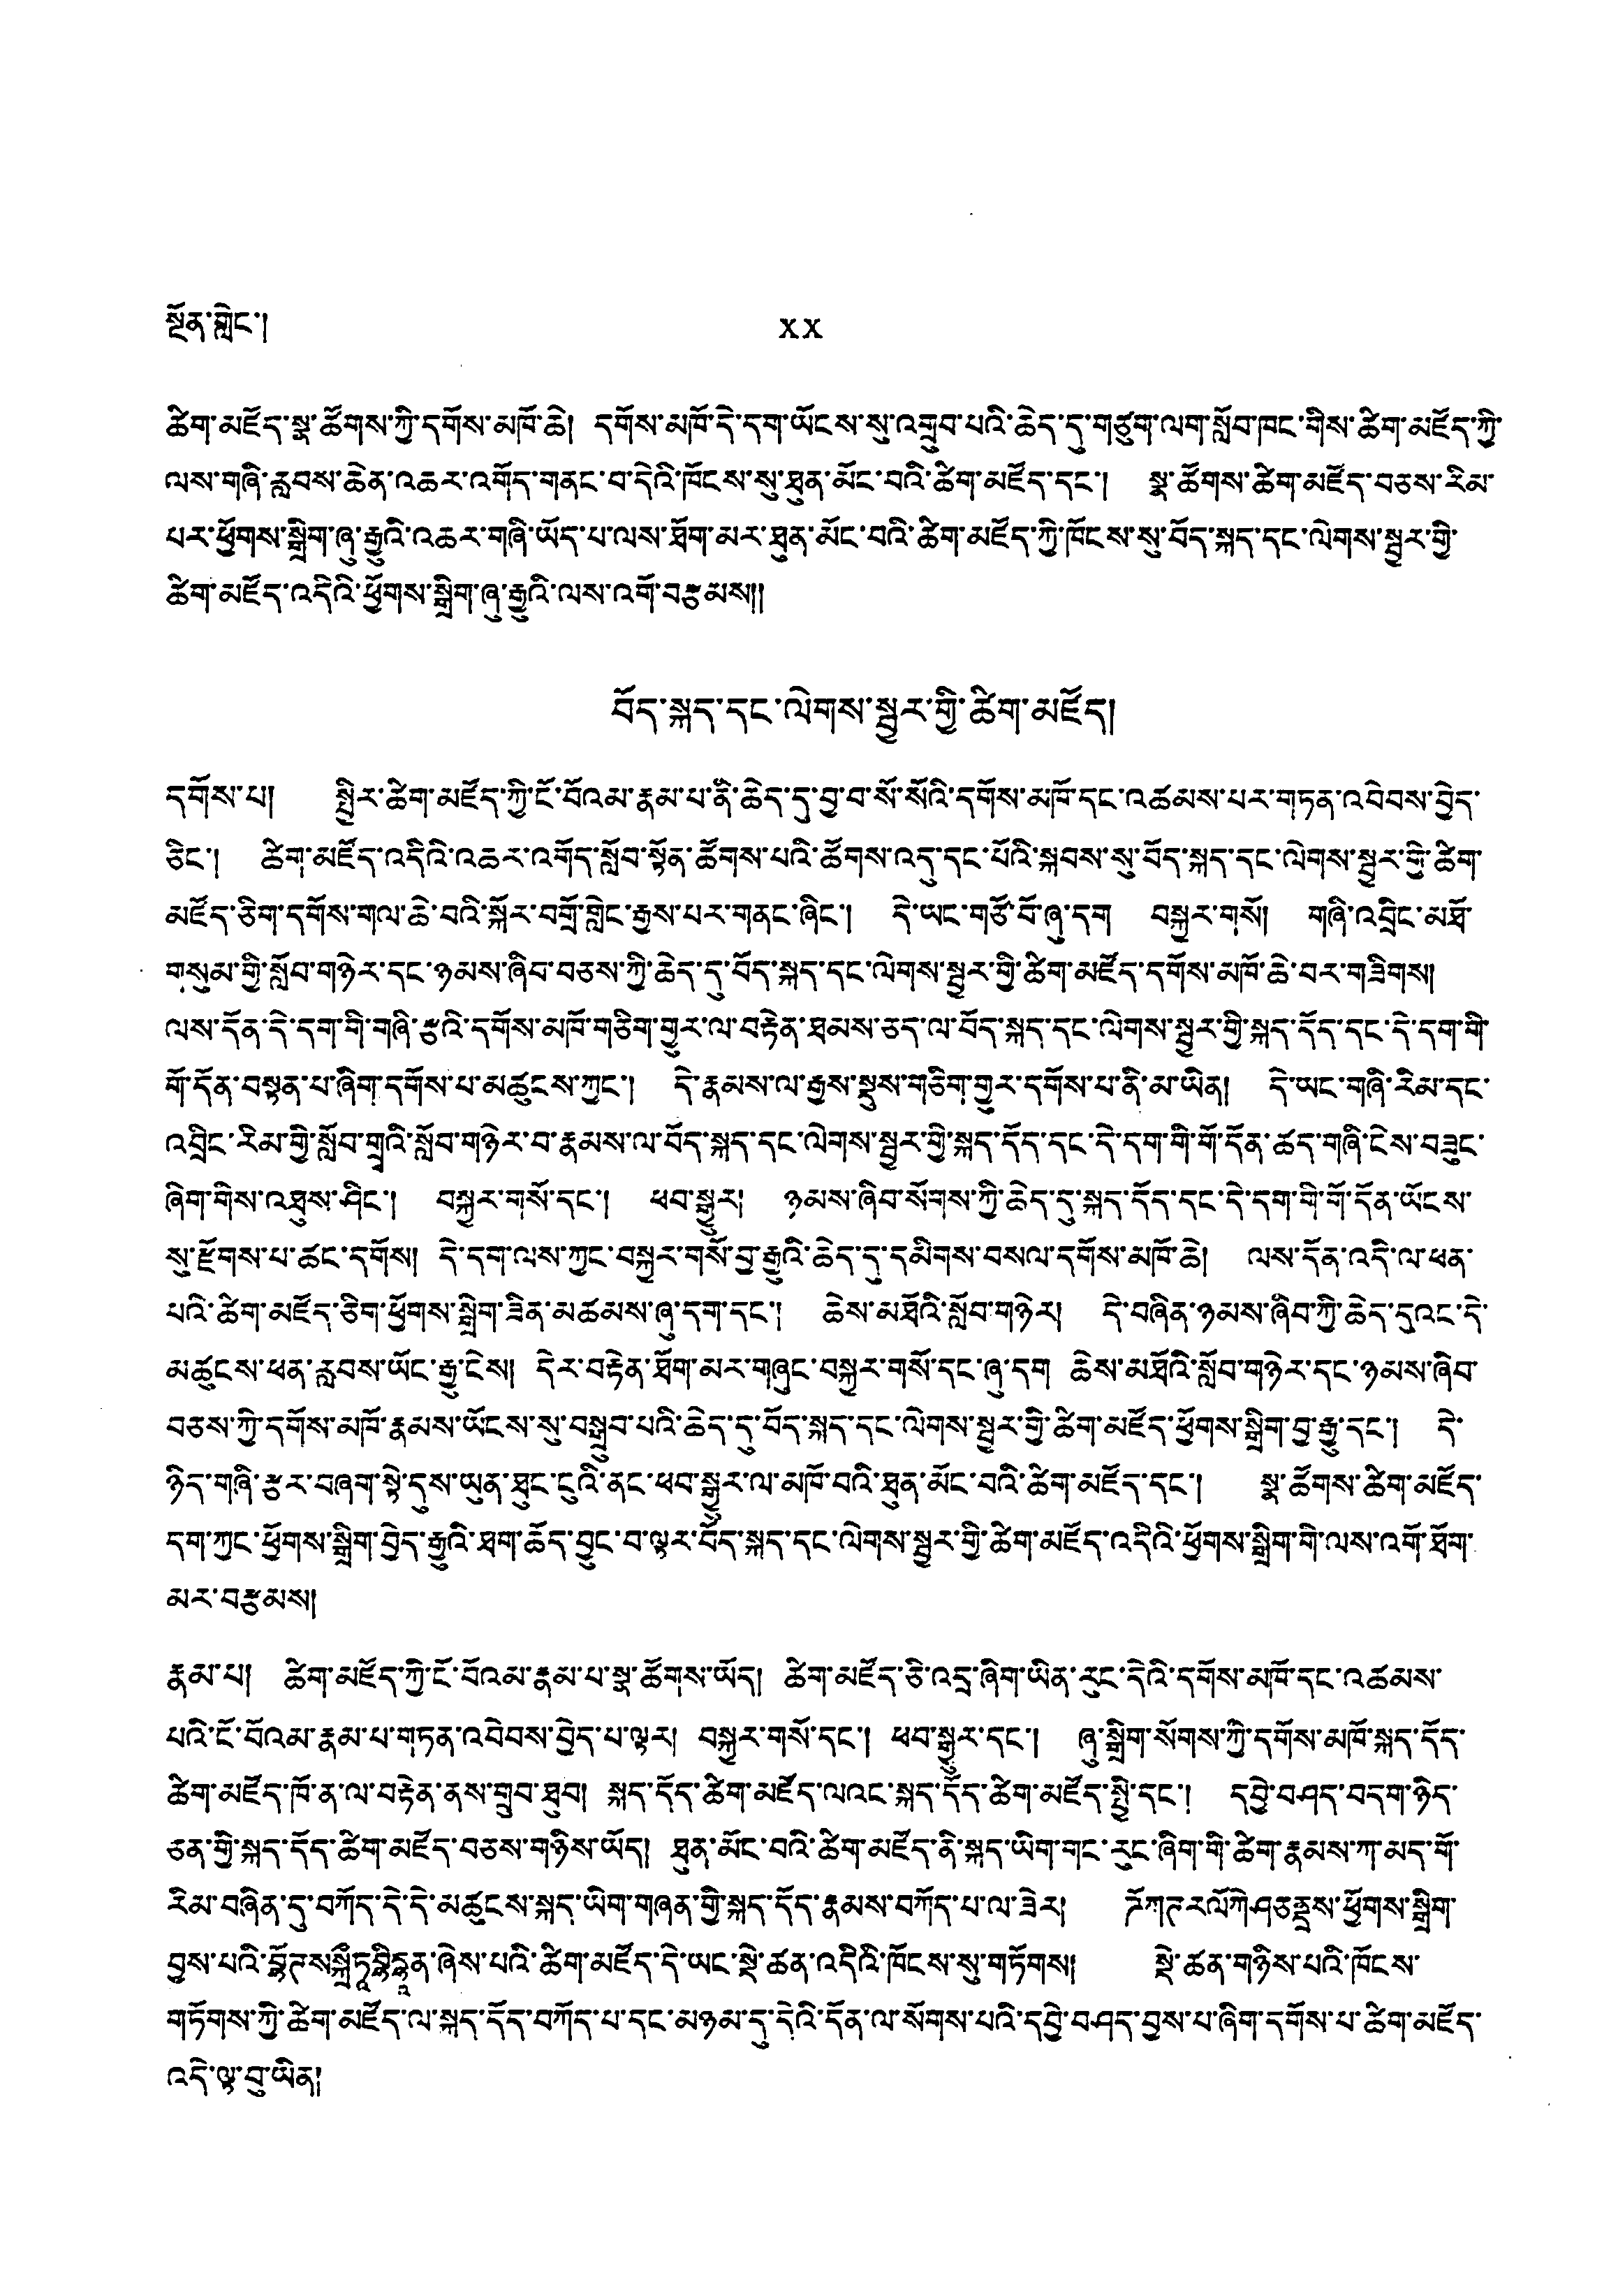 སྔོན་གླེང་།
xx
ཚིག་མཛོད་སྣ་ཚོགས་ཀྱི་དགོས་མཁོ་ཆེ། དགོས་མཁོ་དེ་དག་ཡོངས་སུ་འགྲུབ་པའི་ཆེད་དུ་གཙུག་ལག་སློབ་ཁང་གིས་ཚིག་མཛོད་ཀྱི་
ལས་གཞི་རླབས་ཆེན་འཆར་འགོད་གནང་བ་དེའི་ཁོངས་སུ་ཐུན་མོང་བའི་ཚིག་མཛོད་དང་། སྣ་ཚོགས་ཚིག་མཛོད་བཅས་རིམ་
པར་ཕྱོགས་སྒྲིག་ཞུ་རྒྱུའི་འཆར་གཞི་ཡོད་པ་ལས་ཐོག་མར་ཐུན་མོང་བའི་ཚིག་མཛོད་ཀྱི་ཁོངས་སུ་བོད་སྐད་དང་ལེགས་སྦྱར་གྱི་
ཚིག་མཛོད་འདིའི་ཕྱོགས་སྒྲིག་ཞུ་རྒྱུའི་ལས་འགོ་བརྩམས།།
བོད་སྐད་དང་ལེགས་སྦྱར་གྱི་ཚིག་མཛོད།
དགོས་པ། སྤྱིར་ཚིག་མཛོད་ཀྱི་ངོ་བོའམ་རྣམ་པ་ནི་ཆེད་དུ་བྱ་བ་སོ་སོའི་དགོས་མཁོ་དང་འཚམས་པར་གཏན་འབེབས་བྱེད་
ཅིང་། ཚིག་མཛོད་འདིའི་འཆར་འགོད་སློབ་སྟོན་ཚོགས་པའི་ཚོགས་འདུ་དང་པོའི་སྐབས་སུ་བོད་སྐད་དང་ལེགས་སྦྱར་གྱི་ཚིག་
མཛོད་ཅིག་དགོས་གལ་ཆེ་བའི་སྐོར་བགྲོ་གླེང་རྒྱས་པར་གནང་ཞིང་། དེ་ཡང་གཙོ་བོ་ཞུ་དག བསྐྱར་གསོ། གཞི་འབྲིང་མཐོ་
གསུམ་གྱི་སློབ་གཉེར་དང་ཉམས་ཞིབ་བཅས་ཀྱི་ཆེད་དུ་བོད་སྐད་དང་ལེགས་སྦྱར་གྱི་ཚིག་མཛོད་དགོས་མཁོ་ཆེ་བར་གཟིགས།
ལས་དོན་དེ་དག་གི་གཞི་རྩའི་དགོས་མཁོ་གཅིག་གྱུར་ལ་བརྟེན་ཐམས་ཅད་ལ་བོད་སྐད་དང་ལེགས་སྦྱར་གྱི་སྐད་དོད་དང་དེ་དག་གི་
གོ་དོན་བསྟན་པ་ཞིག་དགོས་པ་མཚུངས་ཀྱང་། དེ་རྣམས་ལ་རྒྱས་སྡུས་གཅིག་གྱུར་དགོས་པ་ནི་མ་ཡིན། དེ་ཡང་གཞི་རིམ་དང་
འབྲིང་རིམ་གྱི་སློབ་གྲྭའི་སློབ་གཉེར་བ་རྣམས་ལ་བོད་སྐད་དང་ལེགས་སྦྱར་གྱི་སྐད་དོད་དང་དེ་དག་གི་གོ་དོན་ཚད་གཞི་ངེས་བཟུང་
ཞིག་གིས་འཐུས་ཤིང་། བསྐྱར་གསོ་དང་། ཕབ་སྒྱུར། ཉམས་ཞིབ་སོགས་ཀྱི་ཆེད་དུ་སྐད་དོད་དང་དེ་དག་གི་གོ་དོན་ཡོངས་
སུ་རྫོགས་པ་ཚང་དགོས། དེ་དག་ལས་ཀྱང་བསྐྱར་གསོ་བྱ་རྒྱུའི་ཆེད་དུ་དམིགས་བསལ་དགོས་མཁོ་ཆེ། ལས་དོན་འདི་ལ་ཕན་
པའི་ཚིག་མཛོད་ཅིག་ཕྱོགས་སྒྲིག་ཟིན་མཚམས་ཞུ་དག་དང་། ཆེས་མཐོའི་སློབ་གཉེར། དེ་བཞིན་ཉམས་ཞིབ་ཀྱི་ཆེད་དུའང་དེ་
མཚུངས་ཕན་རླབས་ཡོང་རྒྱུ་ངེས། དེར་བརྟེན་ཐོག་མར་གཞུང་བསྐྱར་གསོ་དང་ཞུ་དག ཆེས་མཐོའི་སློབ་གཉེར་དང་ཉམས་ཞིབ་
བཅས་ཀྱི་དགོས་མཁོ་རྣམས་ཡོངས་སུ་བསླུབ་པའི་ཆེད་དུ་བོད་སྐད་དང་ལེགས་སྦྱར་གྱི་ཚིག་མཛོད་ཕྱོགས་སྒྲིག་བྱ་རྒྱུ་དང་། དེ་
ཉིད་གཞི་རྩར་བཞག་སྟེ་དུས་ཡུན་ཐུང་ངུའི་ནང་ཕབ་སྒྱུར་ལ་མཁོ་བའི་ཐུན་མོང་བའི་ཚིག་མཛོད་དང་། སྣ་ཚོགས་ཚིག་མཛོད་
དག་ཀྱང་ཕྱོགས་སྒྲིག་བྱེད་རྒྱུའི་ཐག་ཆོད་བྱུང་བ་ལྟར་བོད་སྐད་དང་ལེགས་སྦྱར་གྱི་ཚིག་མཛོད་འདིའི་ཕྱོགས་སྒྲིག་གི་ལས་འགོ་ཐོག་
མར་བརྩམས།
རྣམ་པ། ཚིག་མཛོད་ཀྱི་ངོ་བོའམ་རྣམ་པ་སྣ་ཚོགས་ཡོད། ཚིག་མཛོད་ཅི་འདྲ་ཞིག་ཡིན་རུང་དེའི་དགོས་མཁོ་དང་འཚམས་
པའི་ངོ་བོའམ་རྣམ་པ་གཏན་འབེབས་བྱེད་པ་ལྟར། བསྐྱར་གསོ་དང་། ཕབ་སྒྱུར་དང་། ཞུ་སྒྲིག་སོགས་ཀྱི་དགོས་མཁོ་སྐད་དོད་
ཚིག་མཛོད་ཁོ་ན་ལ་བརྟེན་ནས་གྲུབ་ཐུབ། སྐད་དོད་ཚིག་མཛོད་ལའང་སྐད་དོད་ཚིག་མཛོད་སྤྱི་དང་། དབྱེ་བཤད་བདག་ཉིད་
ཅན་གྱི་སྐད་དོད་ཚིག་མཛོད་བཅས་གཉིས་ཡོད། ཐུན་མོང་བའི་ཚིག་མཛོད་ནི་སྐད་ཡིག་གང་རུང་ཞིག་གི་ཚིག་རྣམས་ཀ་མད་གོ་
རིམ་བཞིན་དུ་བཀོད་དེ་དེ་མཚུངས་སྐད་ཡིག་གཞན་གྱི་སྐད་དོད་རྣམས་བཀོད་པ་ལ་ཟེར། ཌོཀཊརལོཀེཤཅནྡྲས་ཕྱོགས་སྒྲིག་
བྱས་པའི་ ཞེས་པའི་ཚིག་མཛོད་དེ་ཡང་སྡེ་ཚན་འདིའི་ཁོངས་སུ་གཏོགས། སྡེ་ཚན་གཉིས་པའི་ཁོངས་
གཏོགས་ཀྱི་ཚིག་མཛོད་ལ་སྐད་དོད་བཀོད་པ་དང་མཉམ་དུ་དེའི་དོན་ལ་སོགས་པའི་དབྱེ་བཤད་བྱས་པ་ཞིག་དགོས་པ་ཚིག་མཛོད་
འདི་ལྟ་བུ་ཡིན།